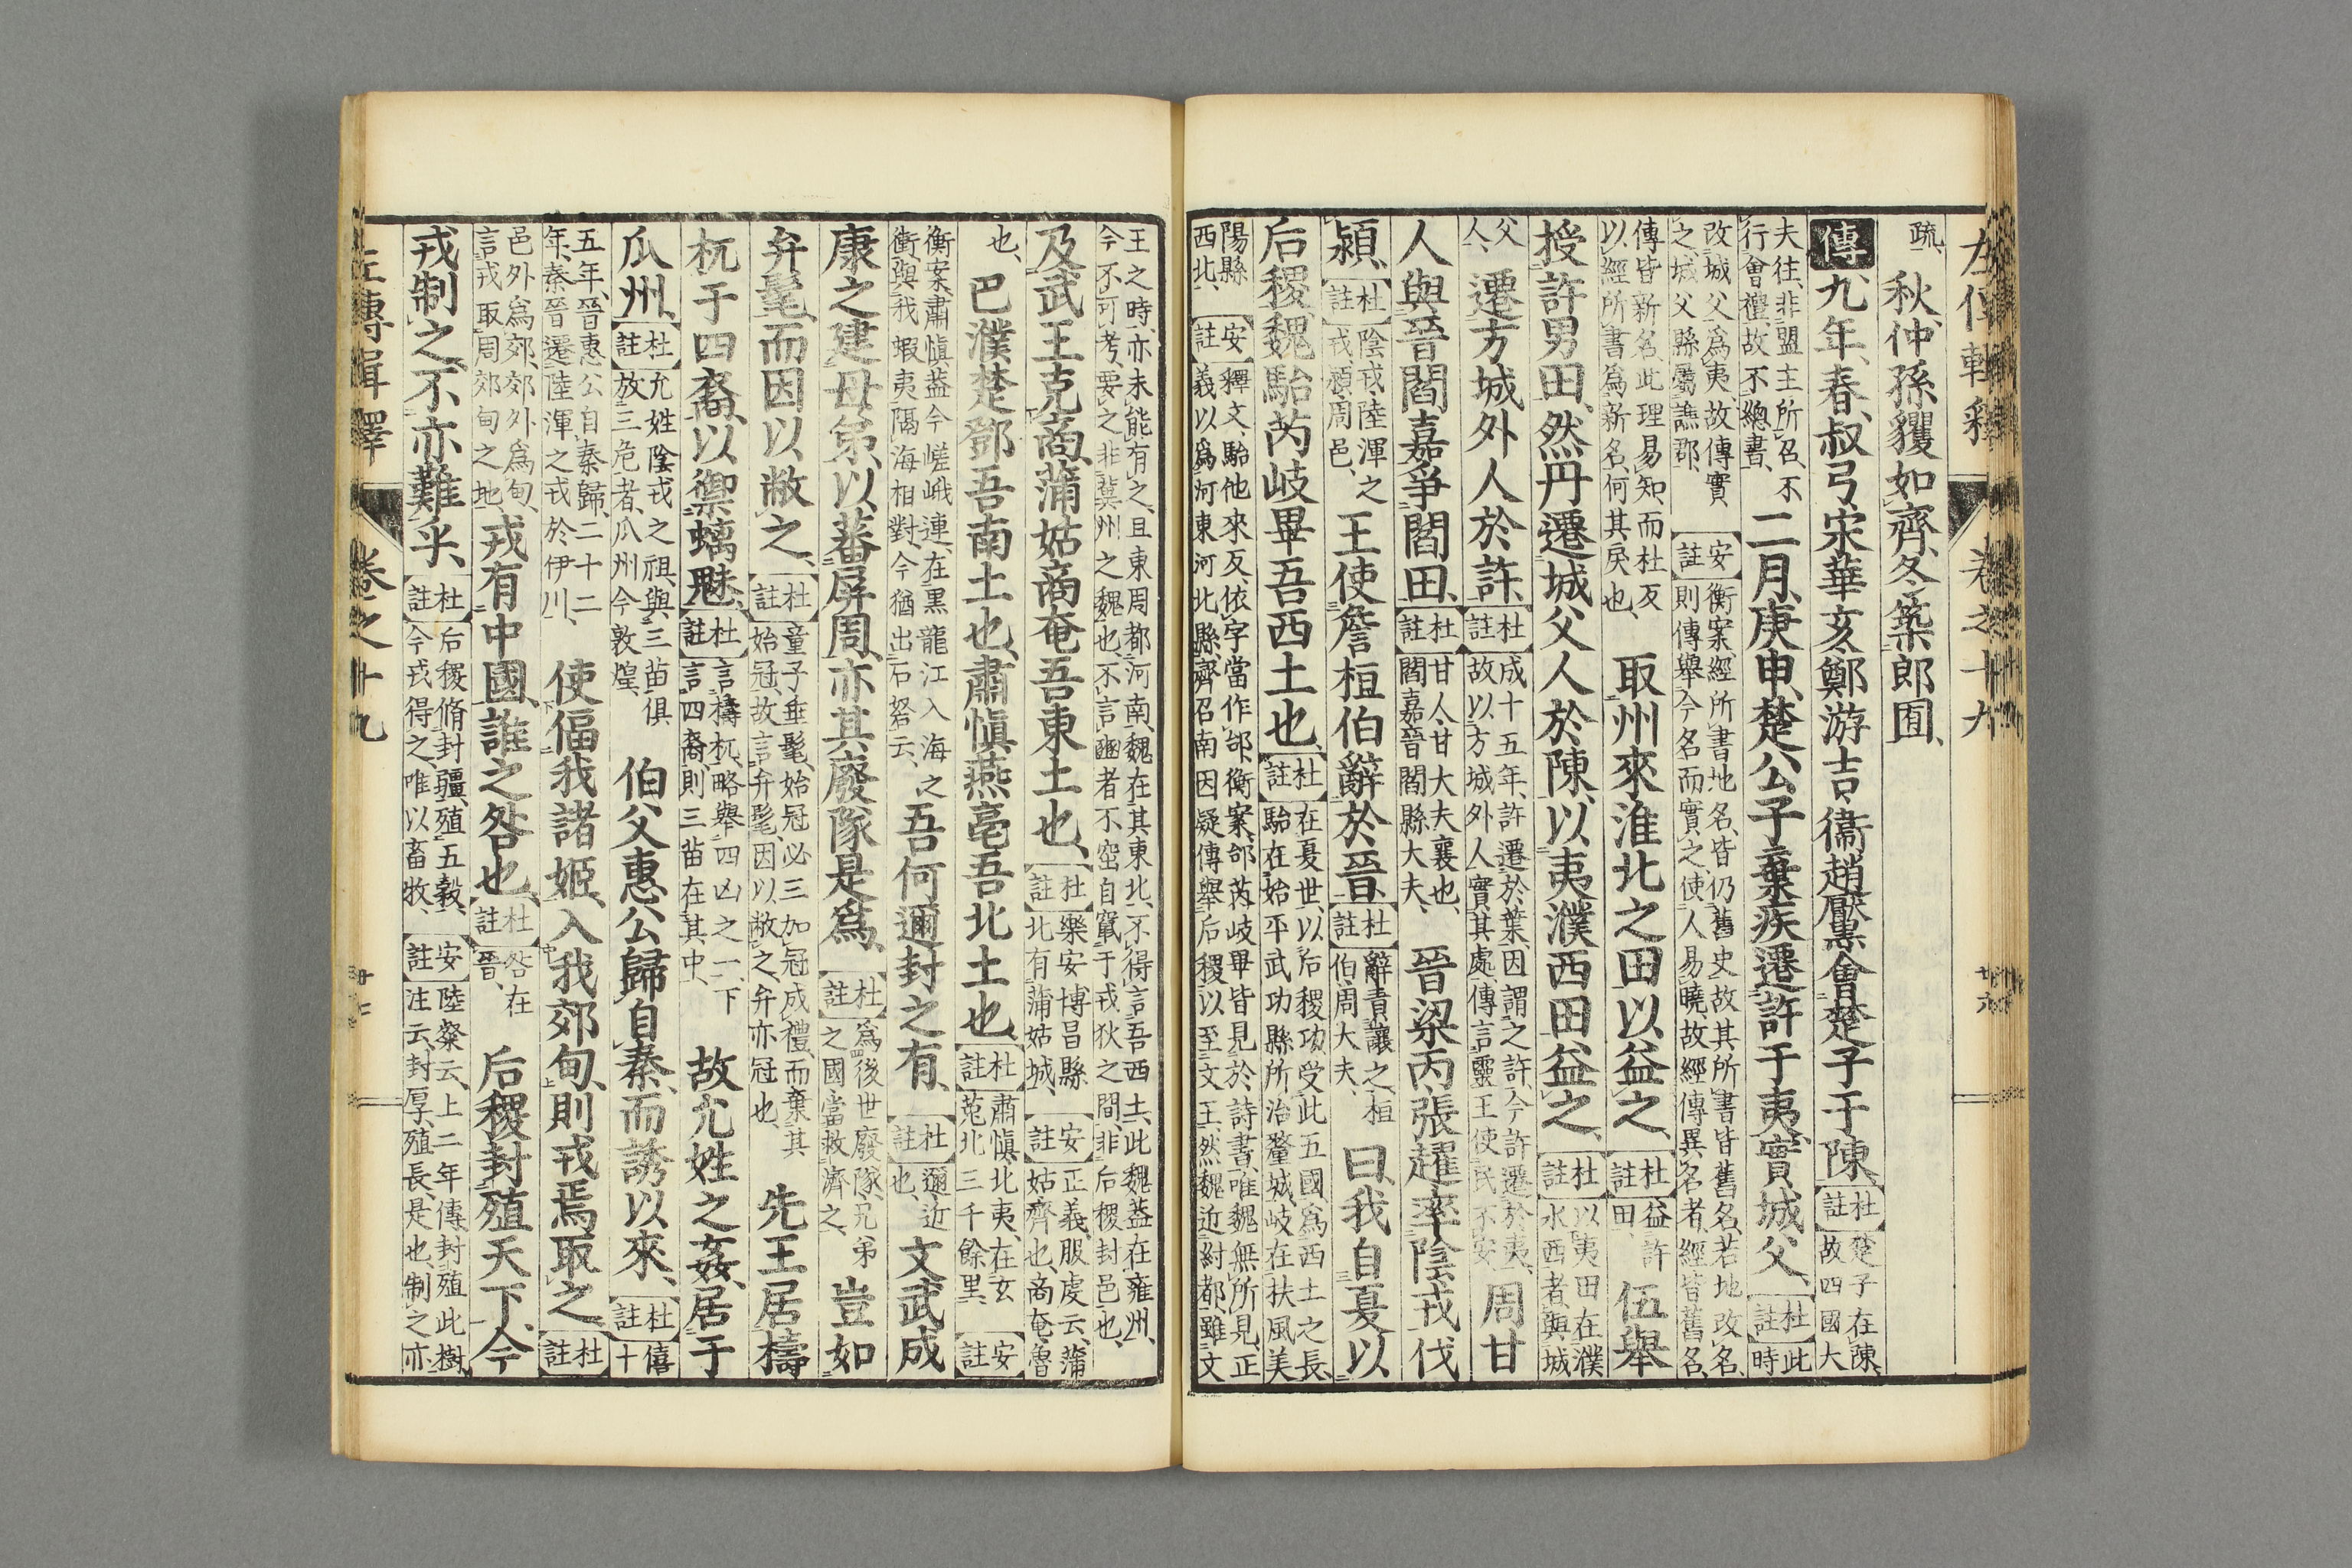 左傳輯釋 卷之十九 廿六
疏、秋、仲孫貜如齊、冬、築郎囿、
傳 九年、春、叔弓、宋華亥、鄭游吉、衞趙黶會楚子于陳、杜註 楚子在陳、故四國大
夫往、非盟主所召、不行會禮、故不總書、二月、庚申、楚公子棄疾遷許于夷、實城父、杜註 此時
改城父爲夷、故傳實之、城父縣屬譙郡、安註 衡案經所書地名、皆仍舊史故其所書皆舊名、若地改名、則傳舉今名而實之、使人易曉、故經傳異名者、經皆舊名、
傳皆新名、此理易知、而杜反以經所書爲新名、何其戾也、取州來淮北之田以益之、杜註 益許田、伍舉
授許男田、然丹遷城父人於陳、以夷濮西田益之、杜註 以夷田在濮水西者、與城
父人、遷方城外人於許、杜註 成十五年、許遷於葉、因謂之許、今許遷於夷、故以方城外人實其處、傳言靈王使民不安、周甘
人與晉閻嘉爭閻田、杜註 甘人、甘大夫襄也、閻嘉晉閻縣大夫、晉梁丙張趯率陰戎伐
潁、杜註 陰戎、陸渾之戎、潁周邑、王使詹桓伯辭於晉、杜註 辭責讓之、桓伯、周大夫、曰、我自夏以
后稷、魏駘芮岐畢吾西土也、杜註 在夏世、以后稷功、受此五國、爲西土之長、駘在始平武功縣所治釐城、岐在扶風美
陽縣西北、安註 釋文、駘他來反、依字當作邰、衡案、邰芮岐畢皆見於詩書、唯魏無所見、正義以爲河東河北縣、齊召南因疑傳舉后稷以至文王、然魏近紂都、雖文
王之時、亦未能有之、且東周都河南、魏在其東北、不得言吾西土、此魏葢在雍州、今不可考、要之非冀州之魏也、不言豳者不窋自竄于戎狄之閒、非后稷封邑也、
及武王克商、蒲姑商奄吾東土也、杜註 樂安博昌縣北有蒲姑城、安註 正義、服虔云、蒲姑齊也、商奄、魯
也、巴濮楚鄧吾南土也、肅愼燕亳吾北土也、杜註 肅愼、北夷、在玄菟北三千餘里、安註
衡案、肅愼葢今嵯峨連、在黒龍江入海之衝、與我蝦夷隔海相對、今猶出石砮云、吾何邇封之有、杜註 邇近也、文武成
康之建母弟、以蕃屏周、亦其廢隊是爲、杜註 爲後世廢隊、兄弟之國當救濟之、豈如
弁髦、而因以敝之、杜註 童子垂髦、始冠必三加冠成禮、而棄其始冠、故言弁髦、因以敝之、弁亦冠也、先王居檮
杌于四裔、以禦螭魅、杜註 言檮杌、略舉四凶之一、下言四裔、則三苗在其中、故允姓之姦、居于
瓜州、杜註 允姓陰戎之祖、與三苗俱放三危者、瓜州今敦煌、伯父惠公歸自秦、而誘以來、杜註 僖十
五年、晉惠公自秦歸、二十二年、秦晉遷陸渾之戎於伊川、使偪我諸姬、入我郊甸、則戎焉取之、杜註
邑外爲郊、郊外爲甸、言戎取周郊甸之地、戎有中國、誰之咎也、杜註 咎在晉、后稷封殖天下、今
戎制之、不亦難乎、杜註 后稷脩封疆、殖五穀、今戎得之、唯以畜牧、安註 陸粲云、上二年傳、封殖此樹、注云、封厚、殖長、是也、制之亦
左傳輯釋 卷之十九